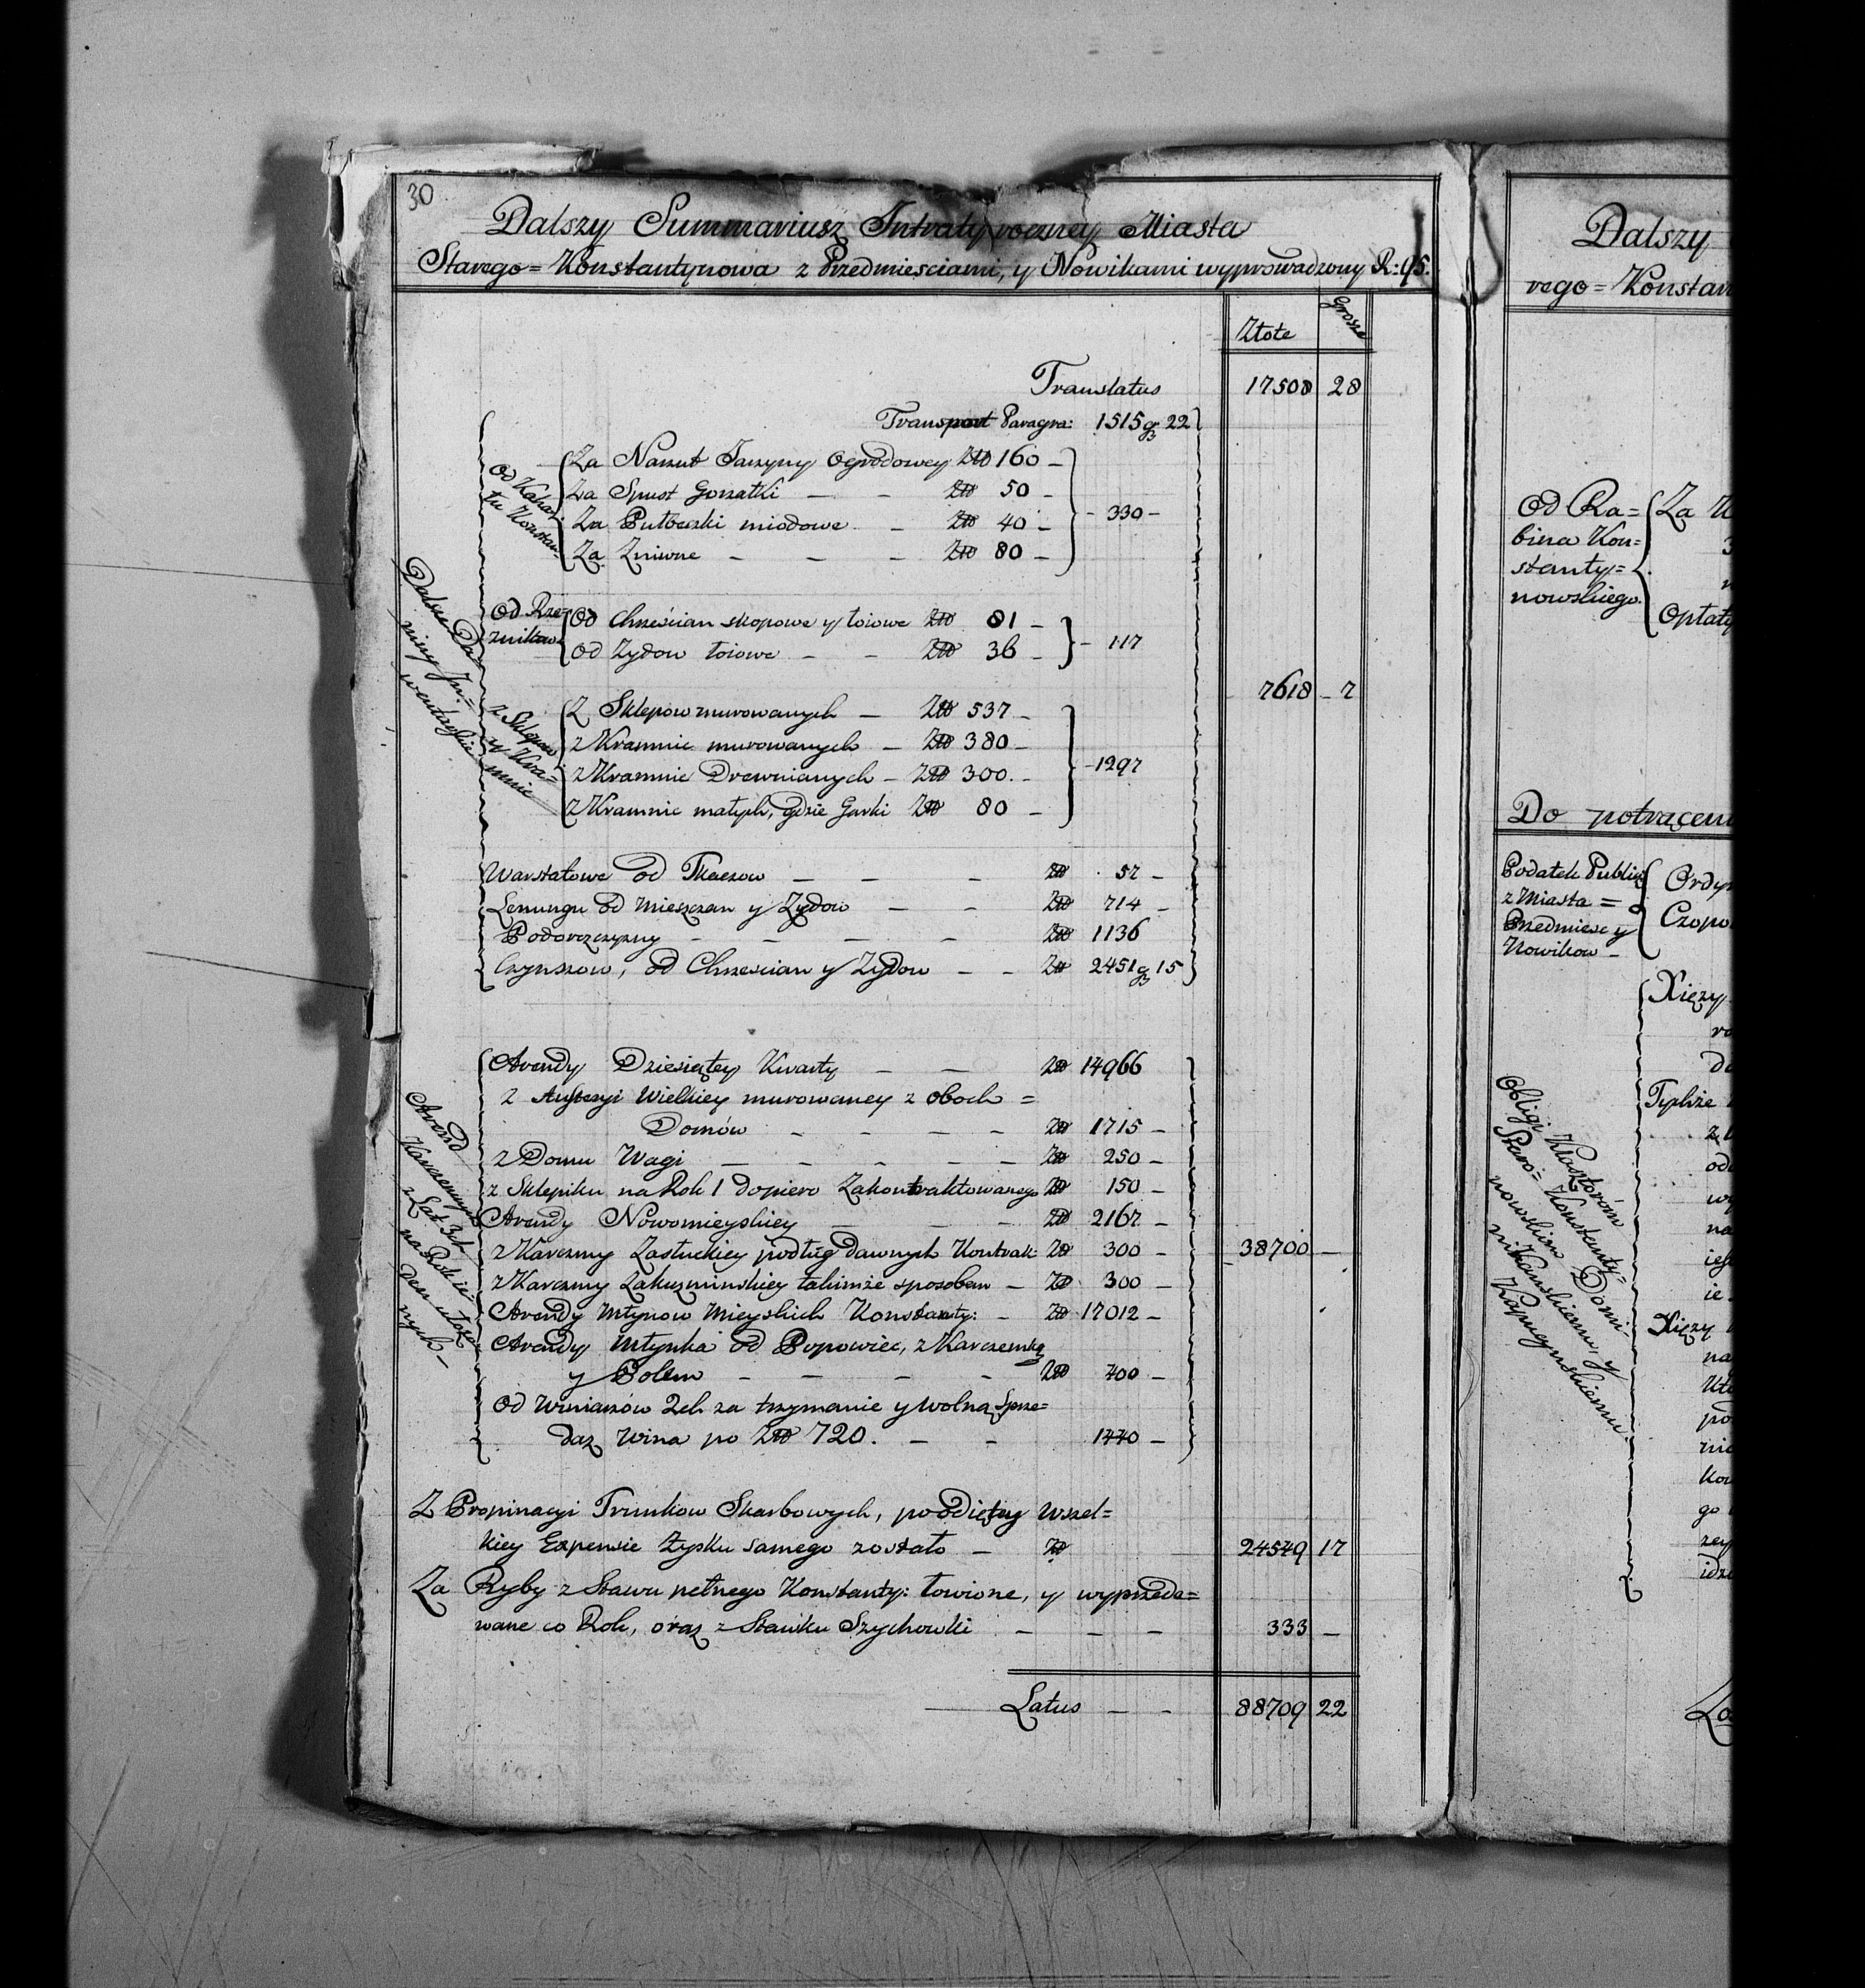 30
Dalszy Summariusz Intraty roczney Miasta
Starego=Konstantynowa z Przedmiesciami, y Nowikami wyprowadzony R: 95.
Złote Grosze
Translatus 17508 28
Transport Paragra: 1515 gr 22
Od Kaha-
łu Konstan:
Za Naszut Jarzyny Ogrodowey Złł 160 –
Za Spust Gorzałki – – Złł 50 –
Za Putbeczki miodowe – Złł 40 –
Za Zniwne – – – Złł 80 –
– 330 –
Dalsze Da-
niny In=
wentarskie
Od Rze-
znikow
Od Chrześcian skopowe y łoiowe Złł 81 –
Od Zydow łoiowe – – Złł 36 –
– 117
7618 – 7
z Sklepow
y Kra=
mnic
Z Sklepow murowanych – Złł 537 –
z Kramnic murowanych – Złł 380 –
z Kramnic Drewnianych – Złł 300. –
z Kramnic małych, gdzie Garki Złł 80 –
– 1297
Warstatowe od Tkaczow – – – Złł 57 –
Lenungu od Mieszczan y Zydow – – Złł 714 –
Podorczczyzny – – – – Złł 1136
Czynszow, od Chrzescian y Zydow – – Złł 2451 gr 15
Arend
Karczemnych
z Lat 3ch
na Rok ie-
den ułożo
nych –
Arendy Dziesiątey Kwarty – – Złł 14966
z Austeryi Wielkiey murowaney z oboch =
Domów – – – – Złł 1715 –
z Domu Wagi – – – – – Złł 250 –
z Sklepiku na Rok 1 dopiero Zakontraktowanego Złł 150 –
Arendy Nowomieyskiey – – – Złł 2167 –
z Karczmy Zasłuckiey podług dawnych Kontrak: Złł 300 –
38700 –
z Karczmy Zakuzminskiey takimże sposobem – Złł 300 –
Arendy Młynow Mieyskich Konstanty: – Złł 17012 –
Arendy Młynka od Popowiec, z Karczemką
y Polem – – – – Złł 400 –
Od Winiarzów 2ch za trzymanie y wolną Sprze=
daz Wina po Złł 720. – – 1440 –
Z Propinacyi Trunkow Skarbowych, po odiętey wszel=
kiey Expensie Zysku samego zostało – Złł 24549 17
Za Ryby z Stawu pełnego Konstanty: łowione, y wyprzeda=
wane co Rok, oraz z Stawku Szychowki – – – 333 –
Latus – – 88709 22
Dalszy
rego=Konstan
Od Ra=
bina Kon=
stanty=
nowskiego.
Za
Opłaty
Do potrąceni
Podatek Publicz
z Miasta =
Przedmiesc y
Nowikow –
Ordyn
Czopo
Obligi Klasztorom
Staro=Konstanty-
nowskim Domi-
nikańskiemu, y
Kapucynskiemu.
Xięzy
ro
do
Tychże
z
odo
wy
na
ie
Xięzy
na
po
nic
Kon
go
zey
idz